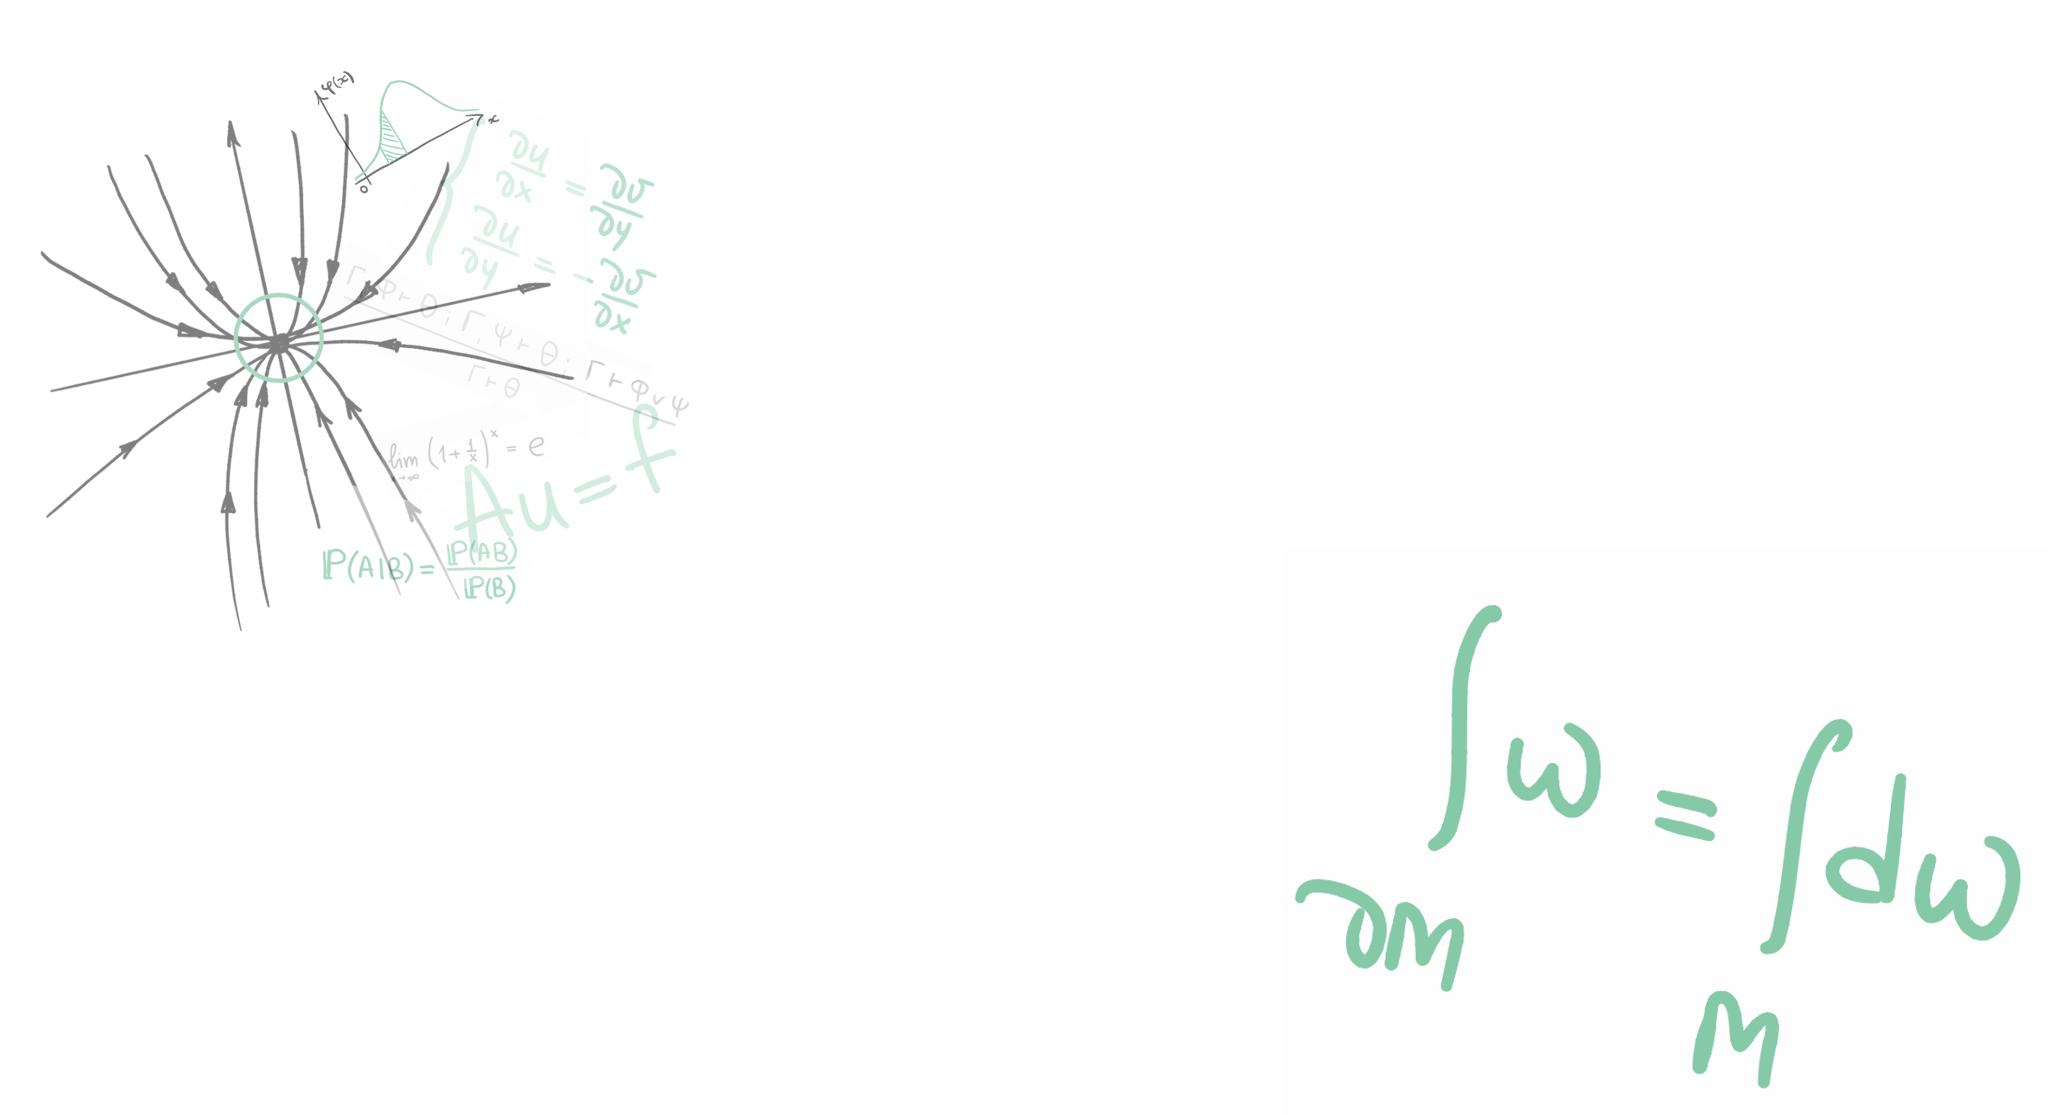 φ(x)
x
0
∂u/∂x = ∂v/∂y
∂u/∂y = -∂v/∂x
Γ,Φ⊢Θ; Γ,Ψ⊢Θ; Γ⊢Φ∨Ψ
Γ⊢Θ
lim (1+1/x)^x = e
x→∞
Au=f
ℙ(A|B) = ℙ(AB)/ℙ(B)
∫ω = ∫dω
∂M
M